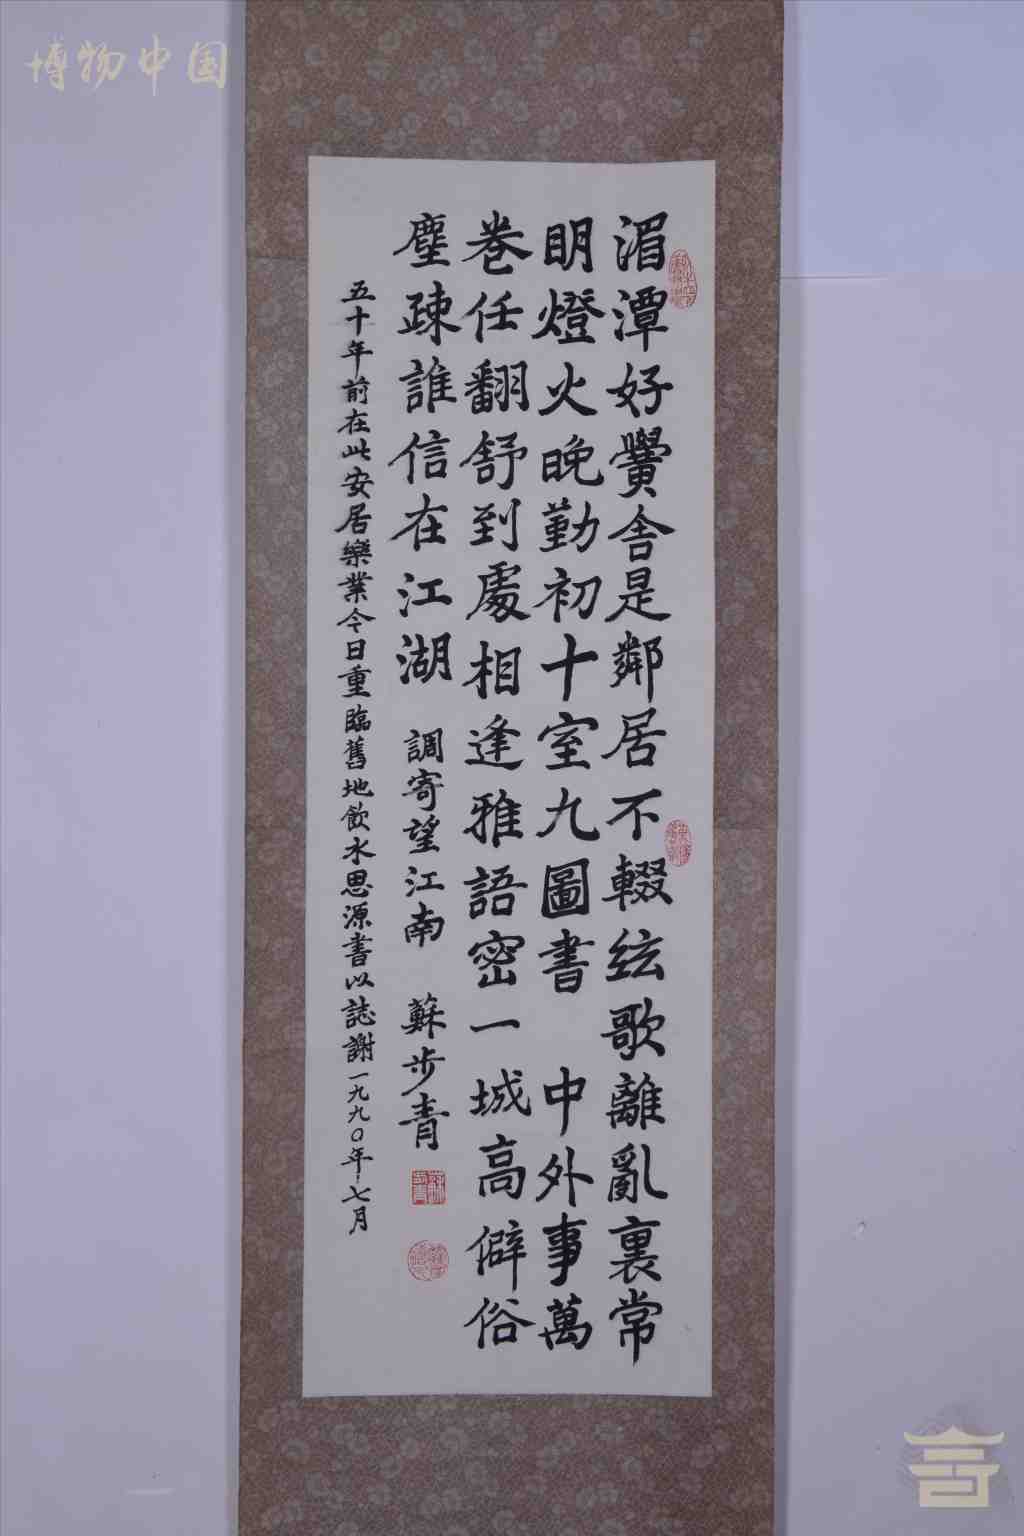 博物中国
湄潭好黌舍是鄰居不輟絃歌離亂裏常
明燈火晚勤初十室九圖書 中外事萬
卷任翻舒到處相逢雅語密一城高僻俗
塵疎誰信在江湖 調寄望江南 蘇步青
五十年前在此安居樂業今日重臨舊地飲水思源書以誌謝一九九〇年七月